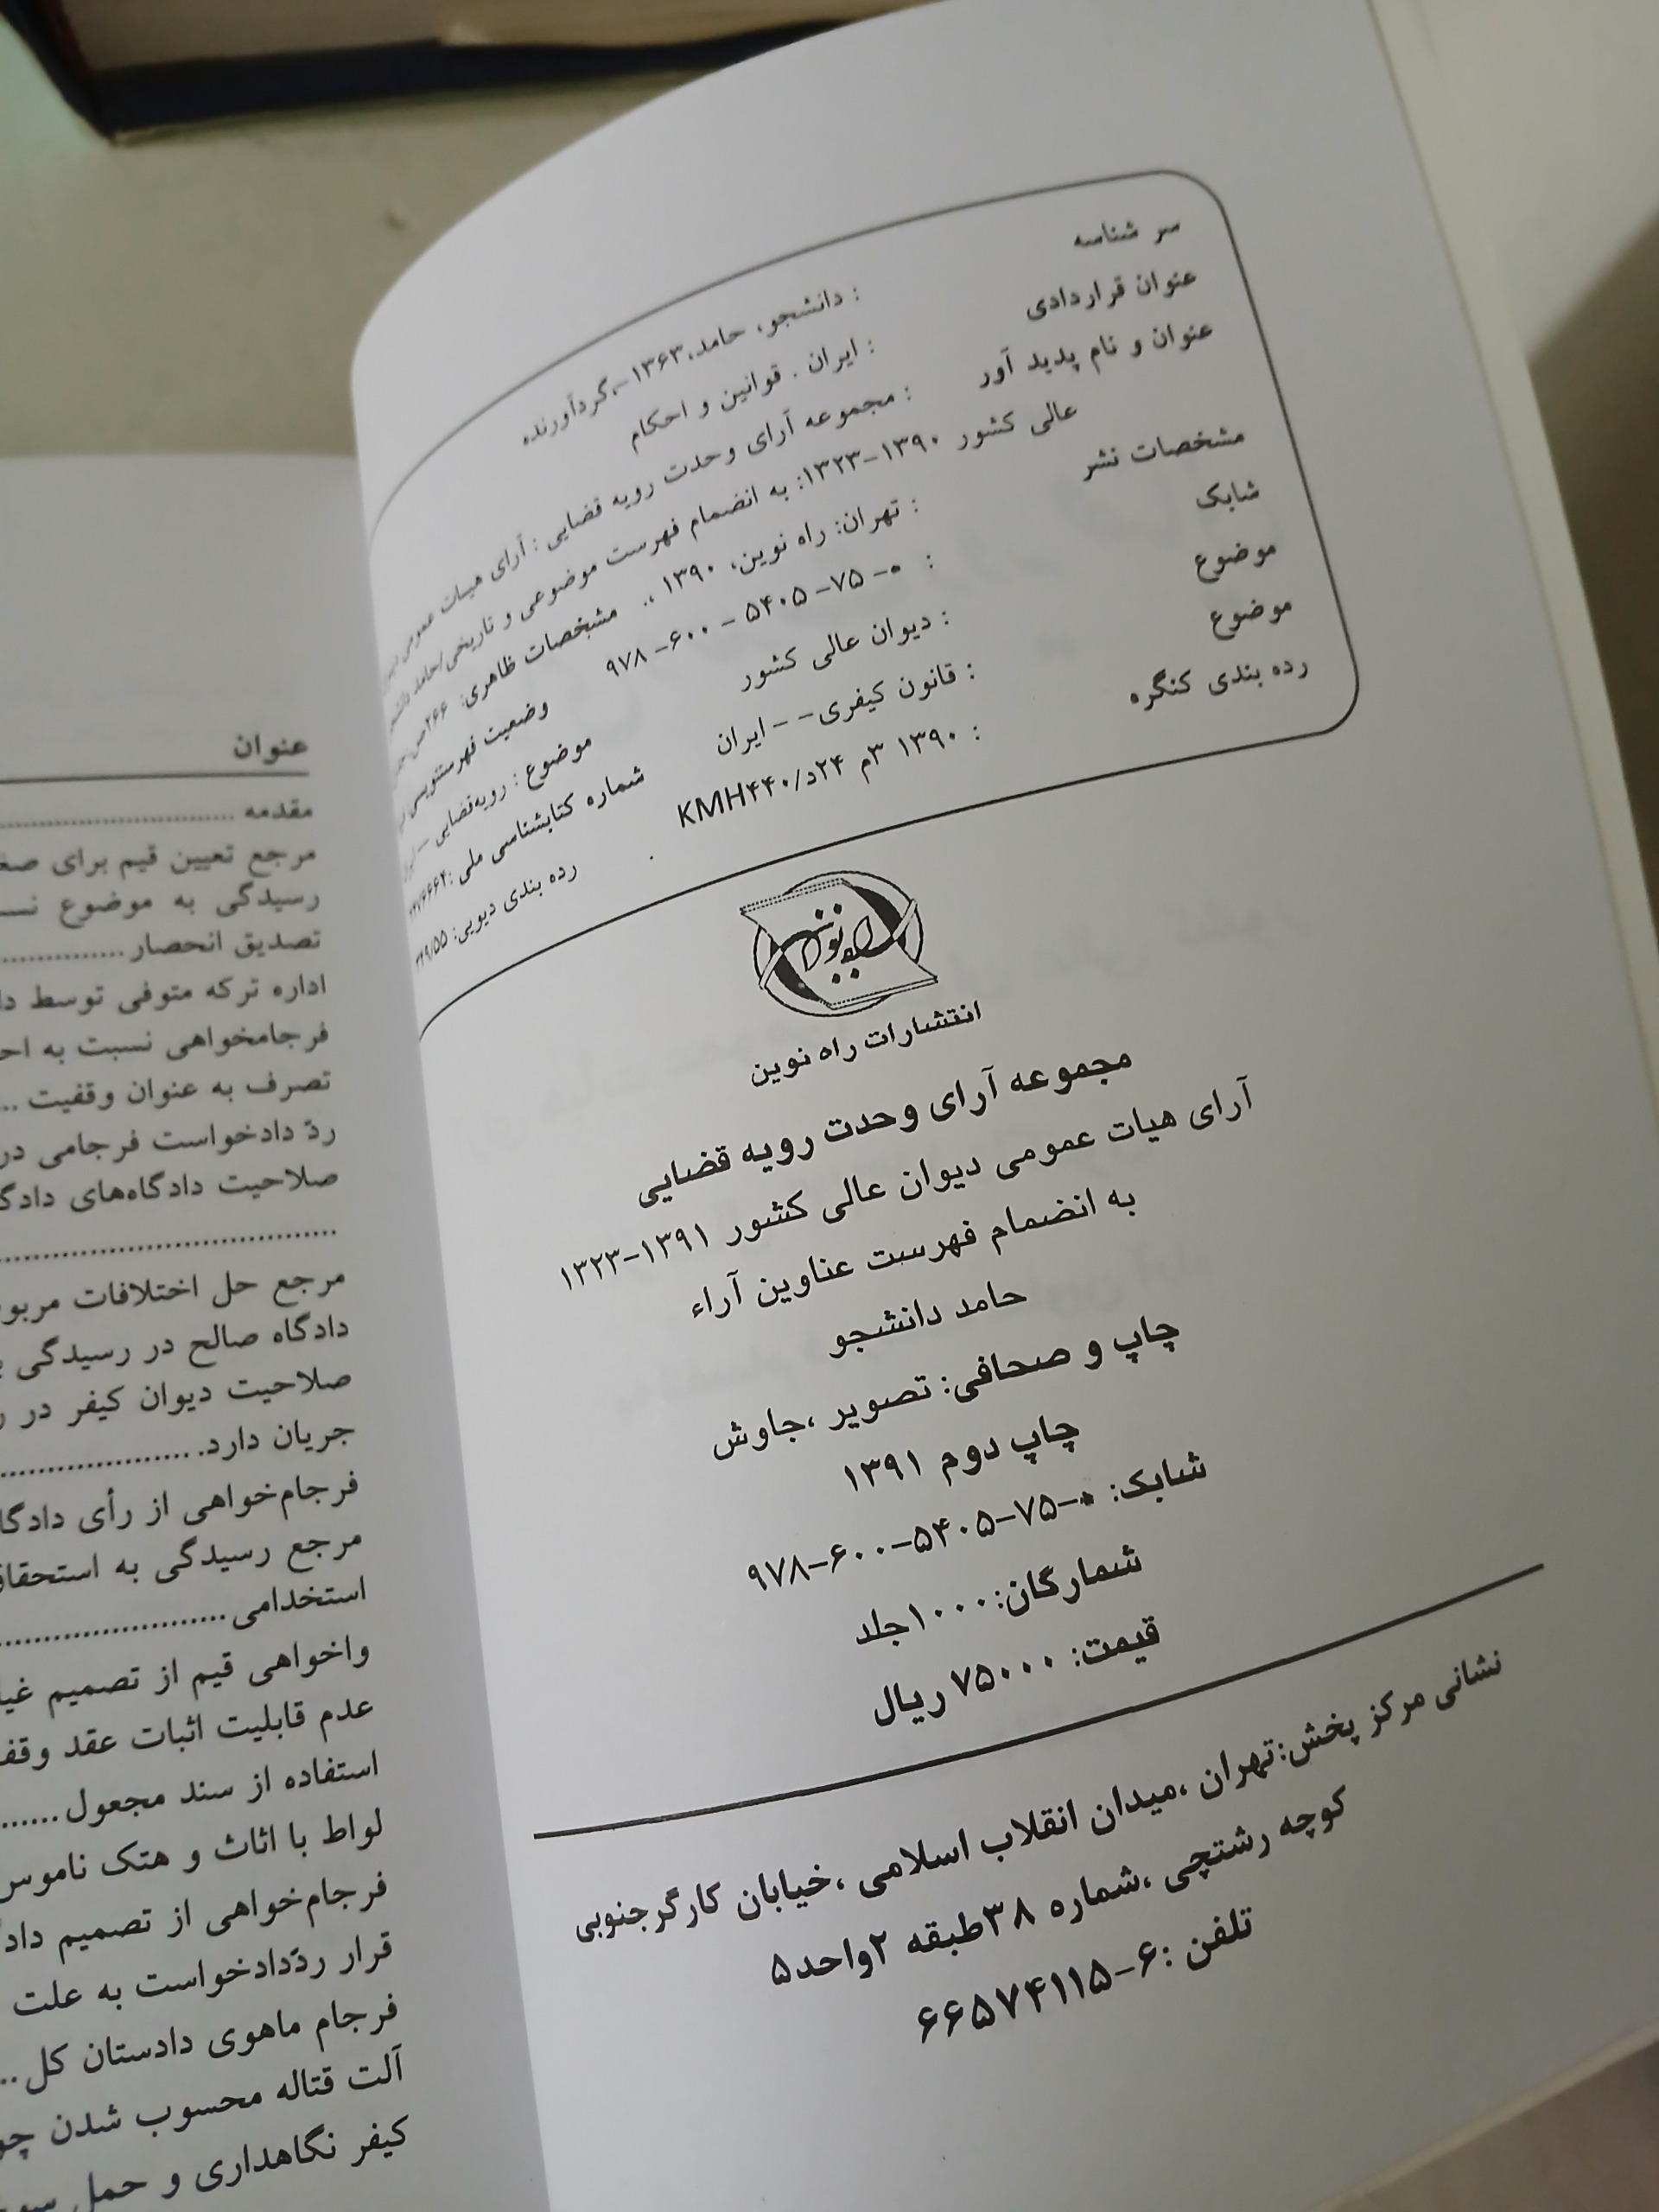 سر شناسه : دانشجو، حامد،۱۳۶۳-،گردآورنده
عنوان قراردادی : ایران . قوانین و احکام
عنوان و نام پدید آور : مجموعه آرای وحدت رویه قضایی : آرای هیات عمومی
عالی کشور ۱۳۹۰-۱۳۲۳: به انضمام فهرست موضوعی و تاریخی/حامد
مشخصات نشر : تهران: راه نوین، ۱۳۹۰ .، مشخصات ظاهری: ۲۶۶ص
شابک : ۰-۷۵-۵۴۰۵-۶۰۰-۹۷۸ وضعیت فهرستنویسی
موضوع : دیوان عالی کشور موضوع : رویه‌قضایی --
موضوع : قانون کیفری-- ایران شماره کتابشناسی ملی :
رده بندی کنگره : ۱۳۹۰ ۳م ۲۴د/KMH۴۴۰ رده بندی دیویی:
راه نوین
انتشارات راه نوین
مجموعه آرای وحدت رویه قضایی
آرای هیات عمومی دیوان عالی کشور ۱۳۹۱-۱۳۲۳
به انضمام فهرست عناوین آراء
حامد دانشجو
چاپ و صحافی: تصویر ،جاوش
چاپ دوم ۱۳۹۱
شابک: ۰-۷۵-۵۴۰۵-۶۰۰-۹۷۸
شمارگان:۱۰۰۰جلد
قیمت: ۷۵۰۰۰ ریال
نشانی مرکز پخش:تهران ،میدان انقلاب اسلامی ،خیابان کارگرجنوبی
کوچه رشتچی ،شماره ۳۸طبقه ۲واحد۵
تلفن :۶-۶۶۵۷۴۱۱۵
عنوان
مقدمه ..............................
مرجع تعیین قیم برای
رسیدگی به موضوع
تصدیق انحصار ...............
اداره ترکه متوفی توسط
فرجامخواهی نسبت به
تصرف به عنوان وقفیت ..
ردّ دادخواست فرجامی در
صلاحیت دادگاه‌های
..............................
مرجع حل اختلافات
دادگاه صالح در رسیدگی
صلاحیت دیوان کیفر در
جریان دارد. ....................
فرجام‌خواهی از رأی
مرجع رسیدگی به
استخدامی.......................
واخواهی قیم از تصمیم
عدم قابلیت اثبات عقد
استفاده از سند مجعول......
لواط با اثاث و هتک ناموس
فرجام‌خواهی از تصمیم
قرار ردّدادخواست به علت
فرجام ماهوی دادستان کل..
آلت قتاله محسوب شدن
کیفر نگاهداری و حمل